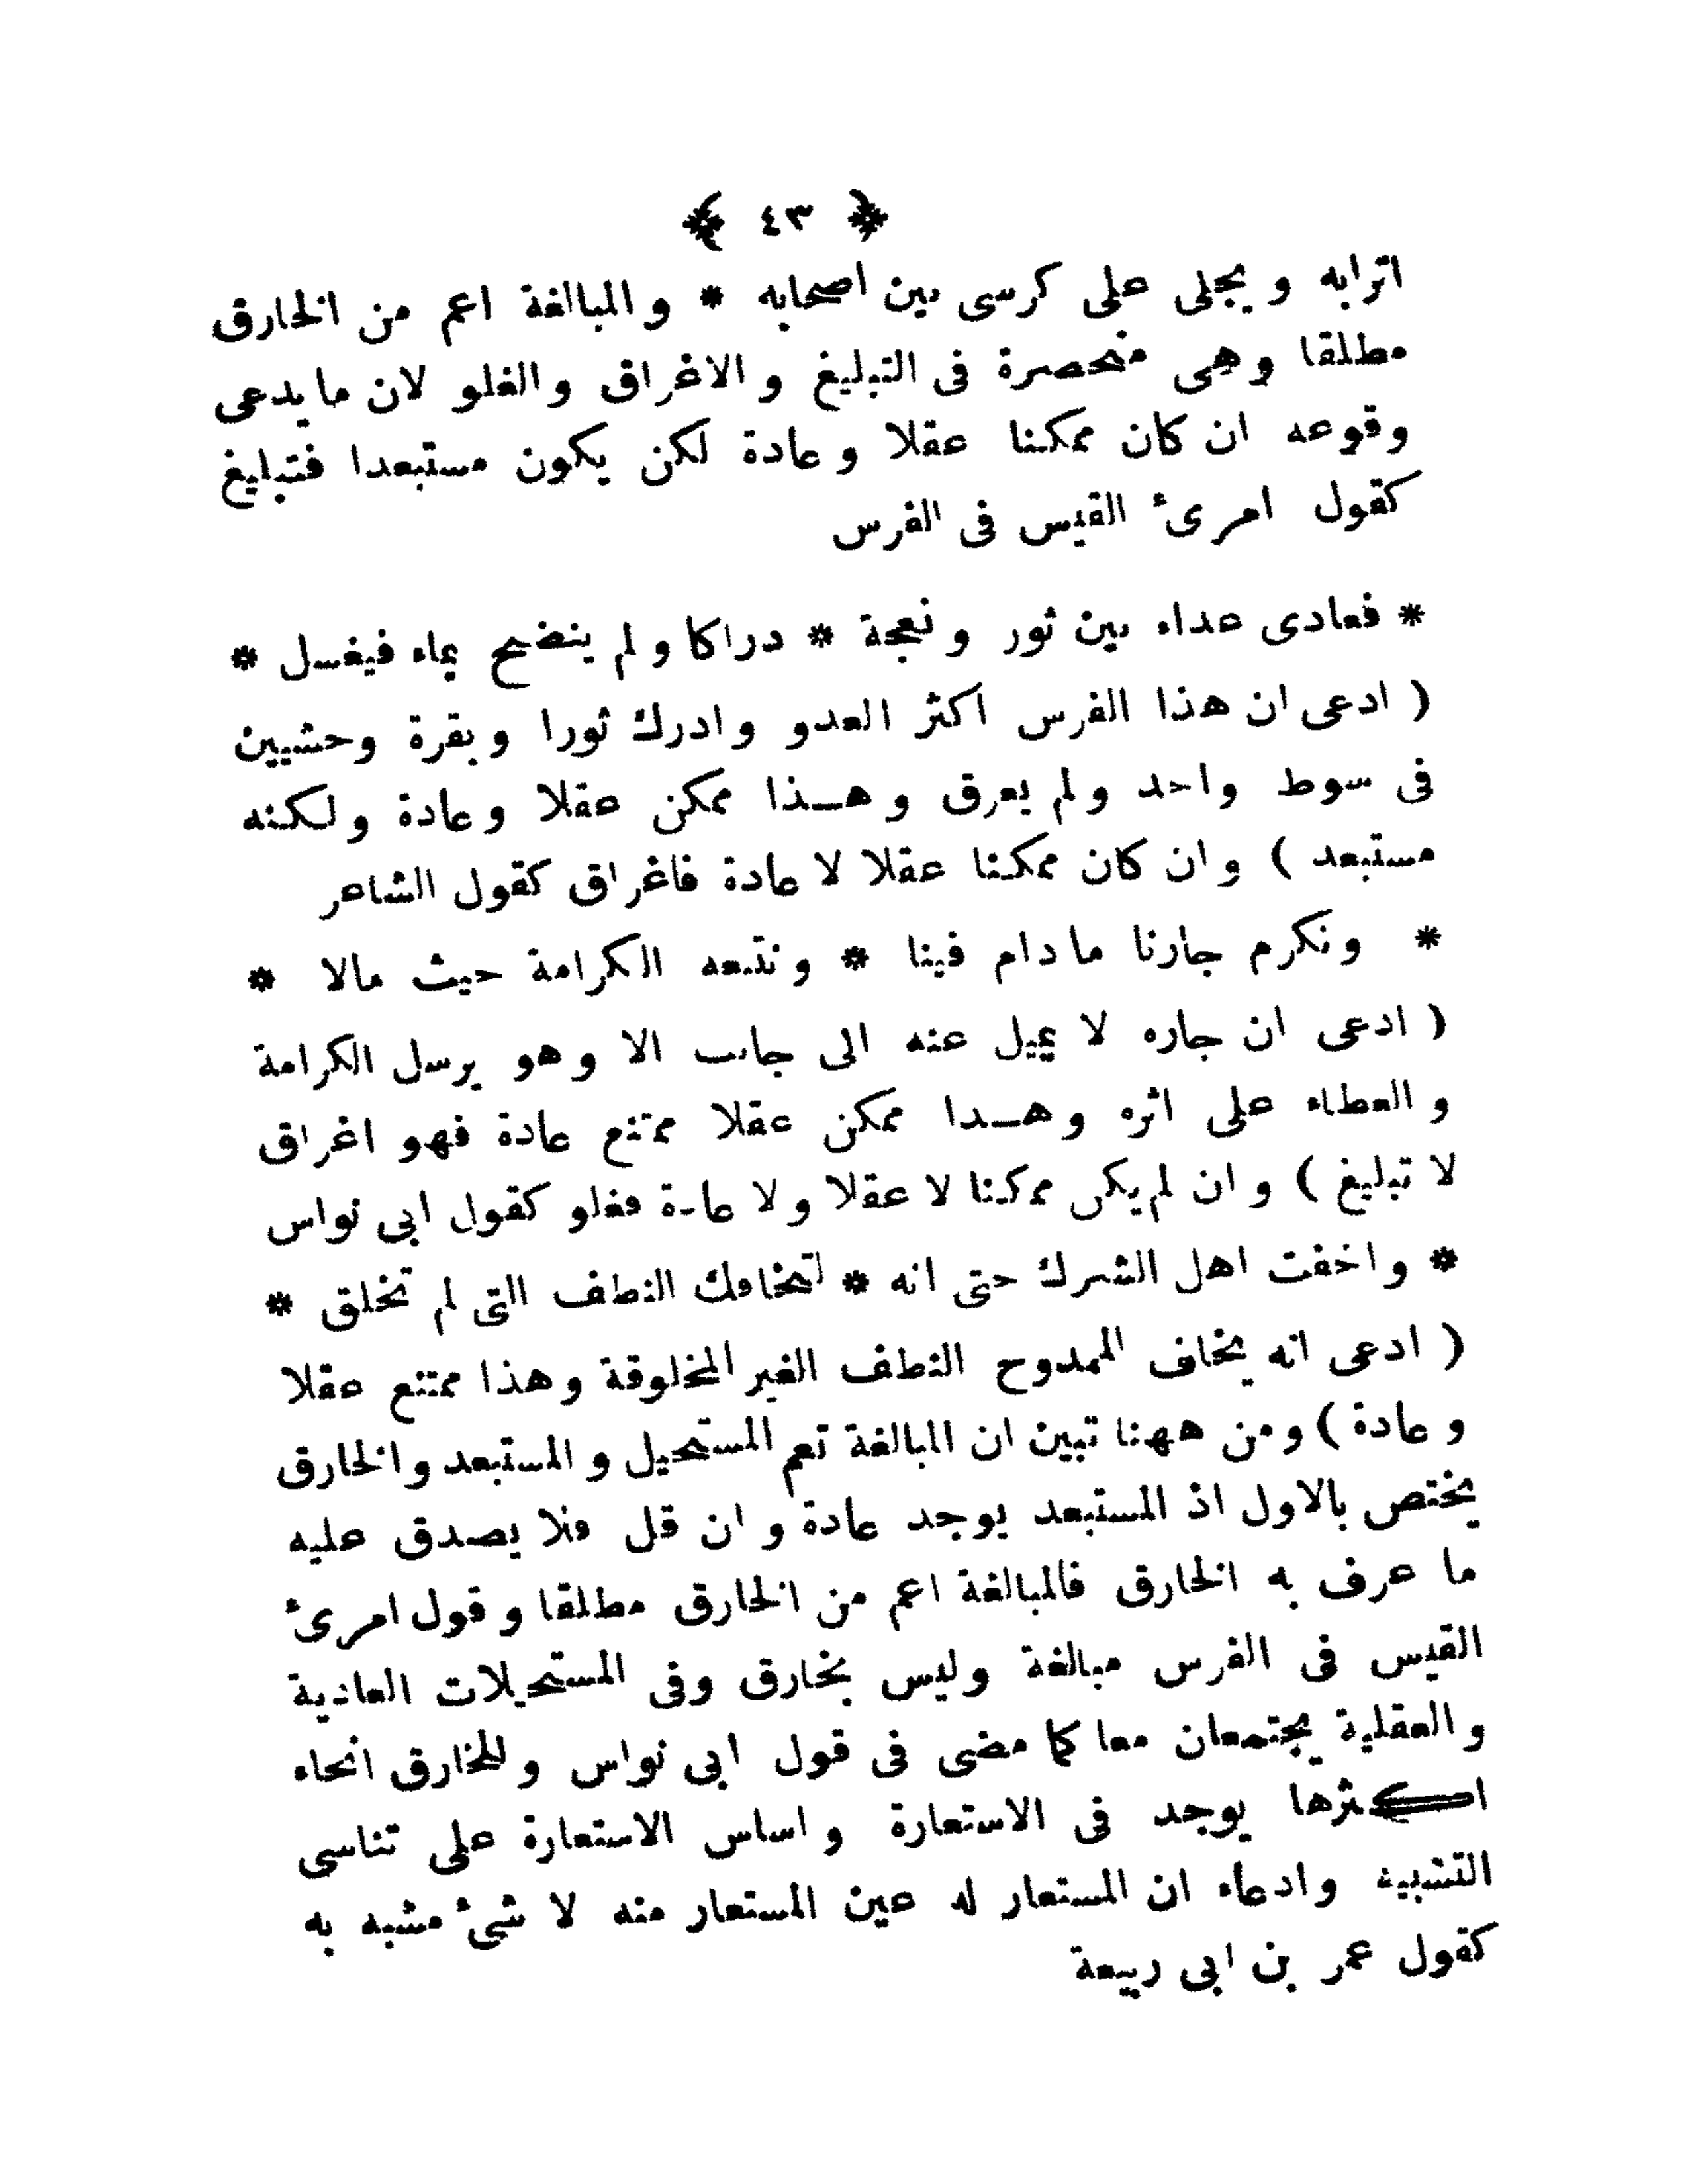 ﴿ ٤٣ ﴾
اترابه و يجلى على كرسى بين اصحابه * و المبالغة اعم من الخارق
مطلقا وهى منحصرة فى التبليغ و الاغراق والغلو لان ما يدعى
وقوعه ان كان ممكنا عقلا و عادة لكن يكون مستبعدا فتبليغ
كقول امرئ القيس فى الفرس
* فعادى عداء بين ثور و نعجة * دراكا و لم ينضح بماء فيغسل *
( ادعى ان هذا الفرس اكثر العدو وادرك ثورا وبقرة وحشيين
فى سوط واحد ولم يعرق وهــذا ممكن عقلا وعادة ولكنه
مستبعد ) وان كان ممكنا عقلا لا عادة فاغراق كقول الشاعر
* ونكرم جارنا مادام فينا * ونتبعه الكرامة حيث مالا *
( ادعى ان جاره لا يميل عنه الى جانب الا وهو يرسل الكرامة
و العطاء على اثره وهــذا ممكن عقلا ممتنع عادة فهو اغراق
لا تبليغ ) وان لم يكن ممكنا لا عقلا ولا عادة فغلو كقول ابى نواس
* واخفت اهل الشرك حتى انه * لتخافك النطف التى لم تخلق *
( ادعى انه يخاف الممدوح النطف الغير المخلوقة وهذا ممتنع عقلا
و عادة ) ومن ههنا تبين ان المبالغة تعم المستحيل و المستبعد والخارق
يختص بالاول اذ المستبعد يوجد عادة و ان قل فلا يصدق عليه
ما عرف به الخارق فالمبالغة اعم من الخارق مطلقا و قول امرئ
القيس فى الفرس مبالغة وليس بخارق وفى المستحيلات العادية
و العقلية يجتمعان معا كما مضى فى قول ابى نواس وللخارق انحاء
اكثرها يوجد فى الاستعارة و اساس الاستعارة على تناسى
التشبيه وادعاء ان المستعار له عين المستعار منه لا شئ مشبه به
كقول عمر بن ابى ربيعة